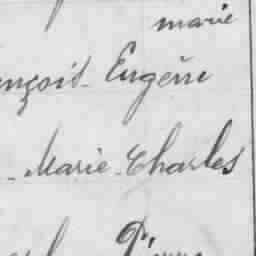 marie
ançois - Eugène
- Marie - Charles